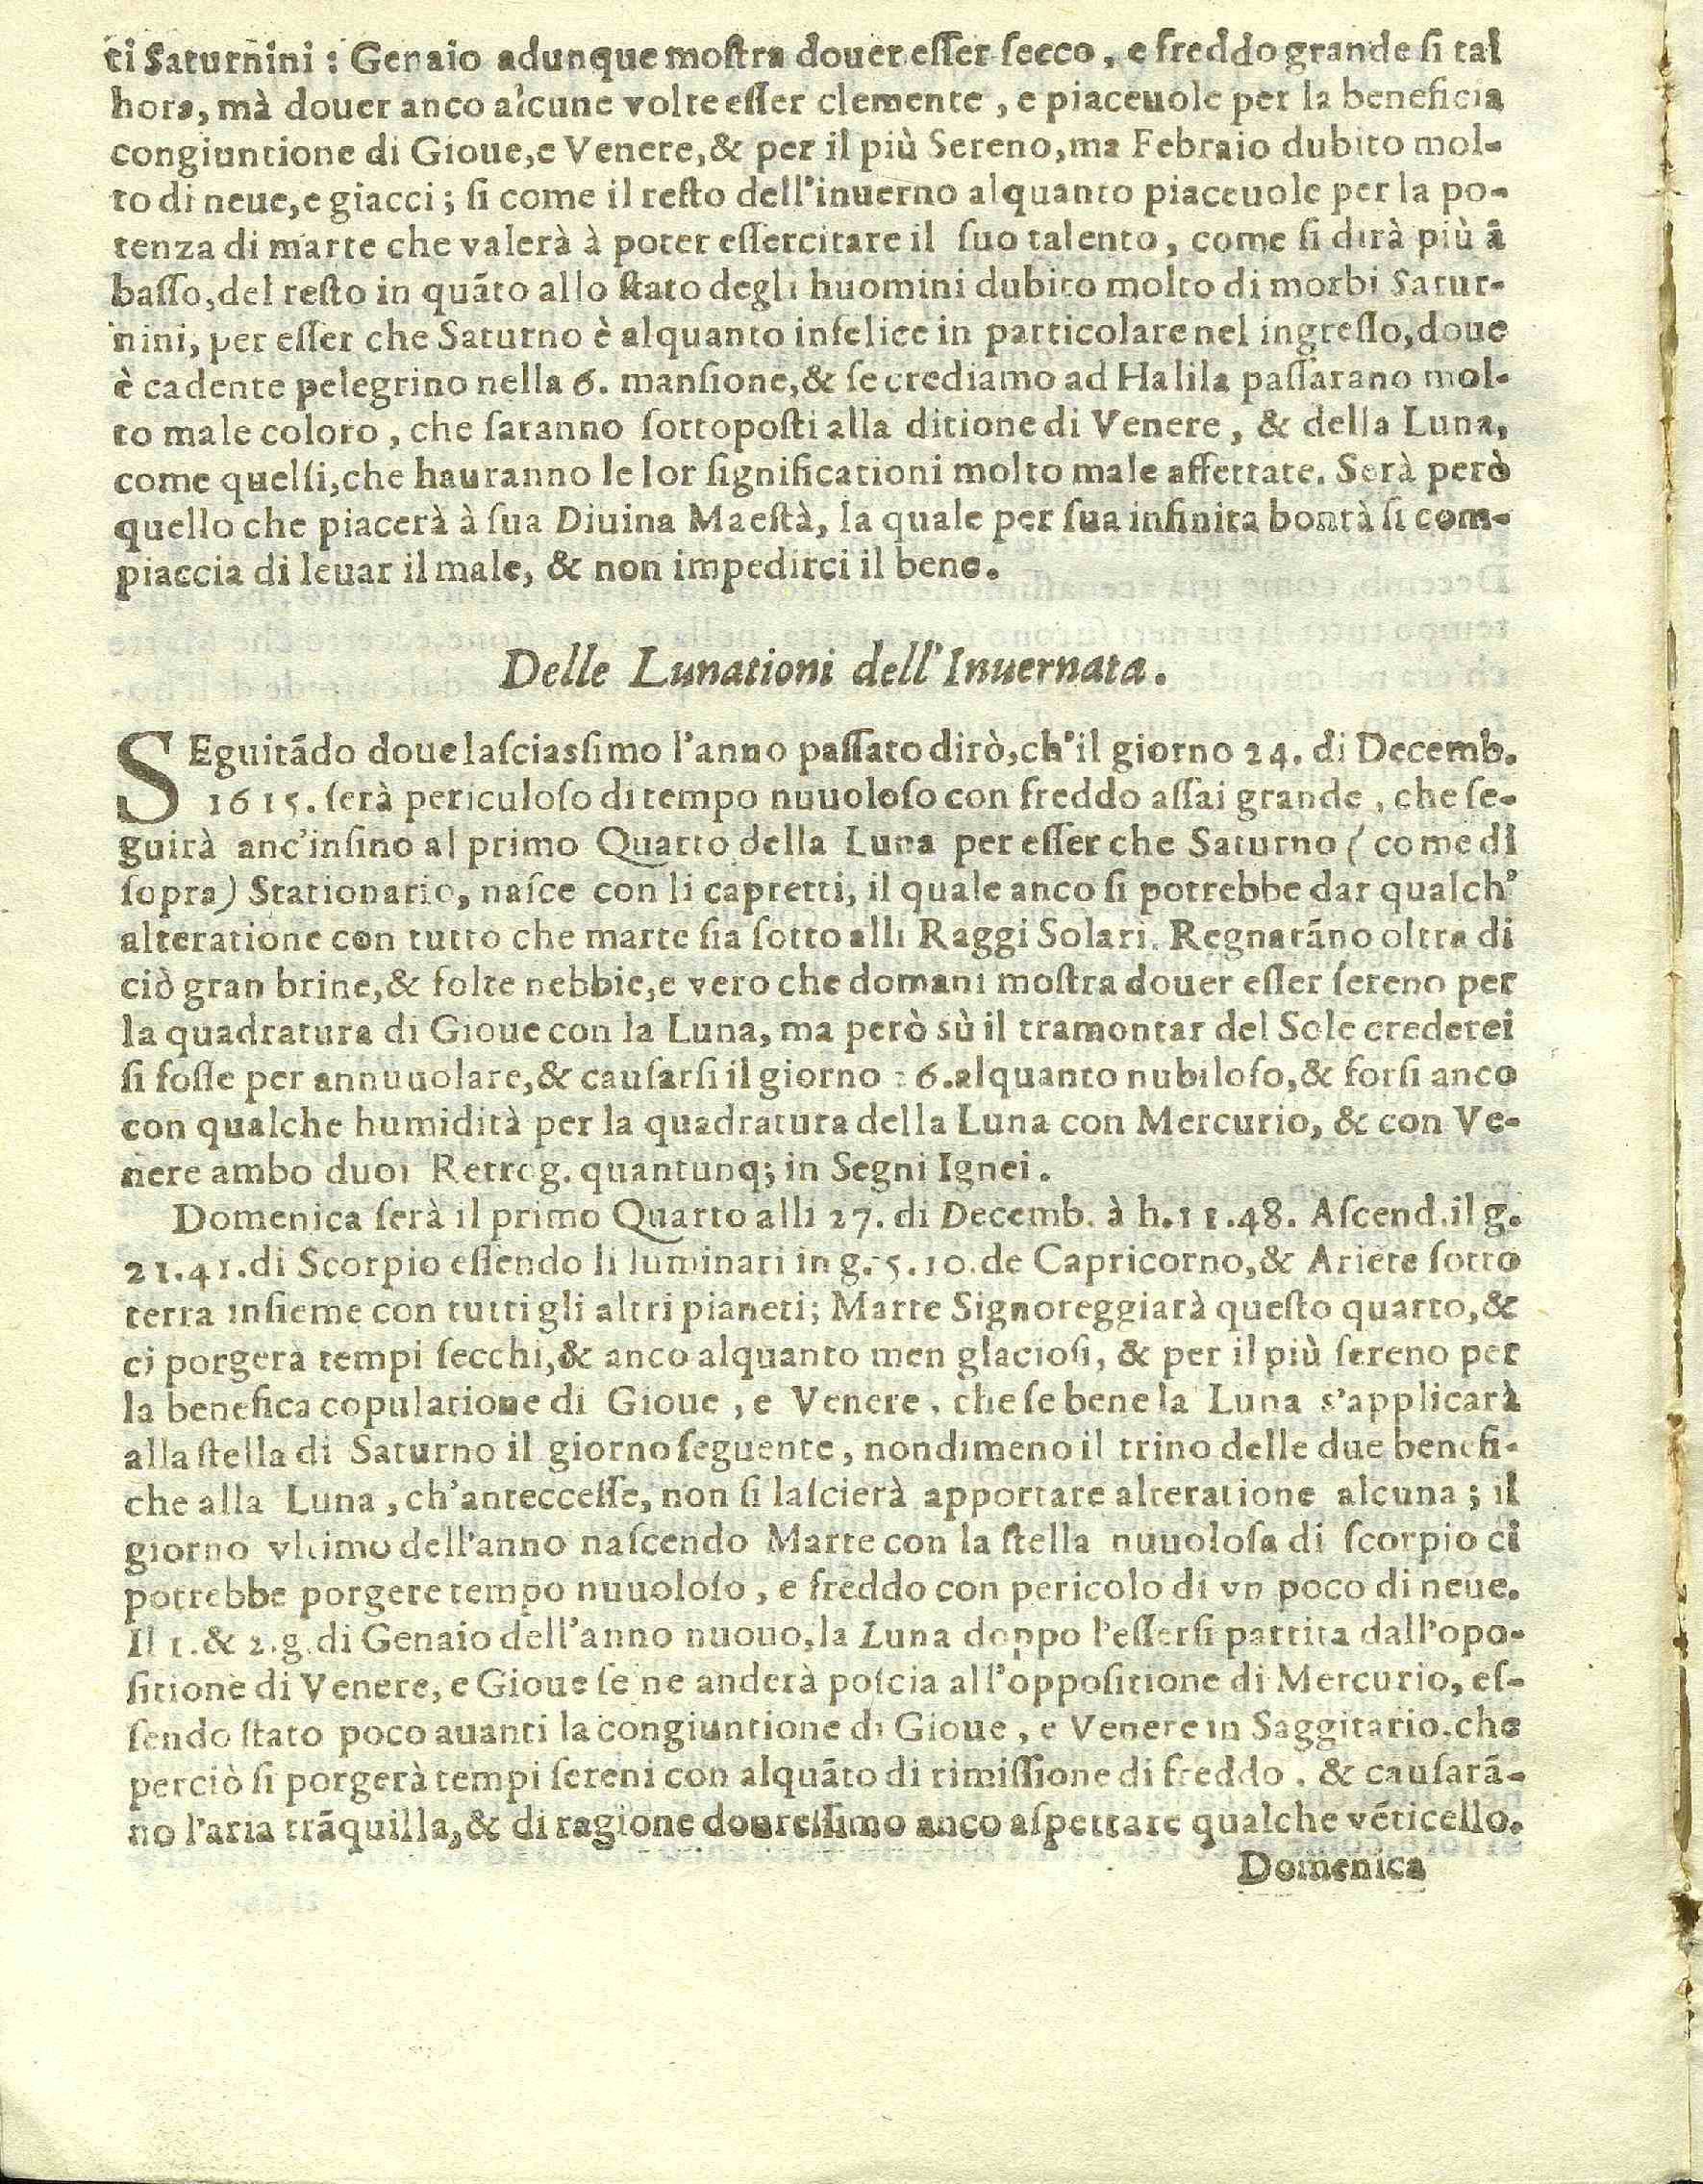 ti Saturnini : Genaio adunque mostra douer esser secco, e freddo grande si tal
hora, mà douer anco alcune volte esser clemente, e piaceuole per la beneficia
congiuntione di Gioue,e Venere,& per il più Sereno,ma Febraio dubito mol-
to di neue,e giacci; si come il resto dell'inuerno alquanto piaceuole per la po-
tenza di marte che valerà à poter essercitare il suo talento, come si dirà più à
basso,del resto in quãto allo stato degli huomini dubito molto di morbi Satur-
nini, per esser che Saturno è alquanto infelice in particolare nel ingresso,doue
è cadente pelegrino nella 6. mansione,& se crediamo ad Halila passarano mol-
to male coloro, che saranno sottoposti alla ditione di Venere, & della Luna,
come quelli,che hauranno le lor significationi molto male affettate. Serà però
quello che piacerà à sua Diuina Maestà, la quale per sua infinita bontà si com-
piaccia di leuar il male, & non impedirci il bene.
Delle Lunationi dell'Inuernata.
SEguitãdo doue lasciassimo l'anno passato dirò,ch'il giorno 24. di Decemb.
1615. serà periculoso di tempo nuuoloso con freddo assai grande, che se-
guirà anc'insino al primo Quarto della Luna per esser che Saturno (come di
sopra) Stationario, nasce con li capretti, il quale anco si potrebbe dar qualch'
alteratione con tutto che marte sia sotto alli Raggi Solari. Regnarãno oltra di
ciò gran brine,& folte nebbie,e vero che domani mostra douer esser sereno per
la quadratura di Gioue con la Luna, ma però sù il tramontar del Sole crederei
si fosse per annuuolare,& causarsi il giorno 26.alquanto nubiloso,& forsi anco
con qualche humidità per la quadratura della Luna con Mercurio, & con Ve-
nere ambo duoi Retrog. quantunq; in Segni Ignei.
Domenica serà il primo Quarto alli 27. di Decemb. à h.11.48. Ascend.il g.
21.41.di Scorpio essendo li luminari in g. 5.10.de Capricorno,& Ariete sotto
terra insieme con tutti gli altri pianeti; Marte Signoreggiarà questo quarto,&
ci porgera tempi secchi,& anco alquanto men glaciosi, & per il più sereno per
la benefica copulatione di Gioue, e Venere, che se bene la Luna s'applicarà
alla stella di Saturno il giorno seguente, nondimeno il trino delle due benefi-
che alla Luna, ch'anteccesse, non si lascierà apportare alteratione alcuna; il
giorno vltimo dell'anno nascendo Marte con la stella nuuolosa di scorpio ci
potrebbe porgere tempo nuuoloso, e freddo con pericolo di vn poco di neue.
Il 1.& 2.g.di Genaio dell'anno nuouo,la Luna doppo l'essersi partita dall'opo-
sitione di Venere, e Gioue se ne anderà poscia all'oppositione di Mercurio, es-
sendo stato poco auanti la congiuntione di Gioue, e Venere in Saggitario.che
perciò si porgerà tempi sereni con alquãto di rimissione di freddo, & causarã-
no l'aria trãquilla,& di ragione douressimo anco aspettare qualche vẽticello.
Domenica